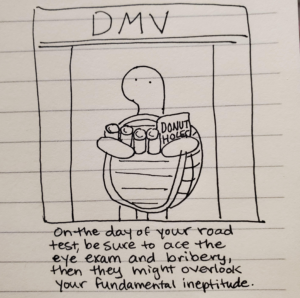 DMV
DONUT
HOLES
On the day of your road
test, be sure to ace the
eye exam and bribery,
then they might overlook
your fundamental ineptitude.